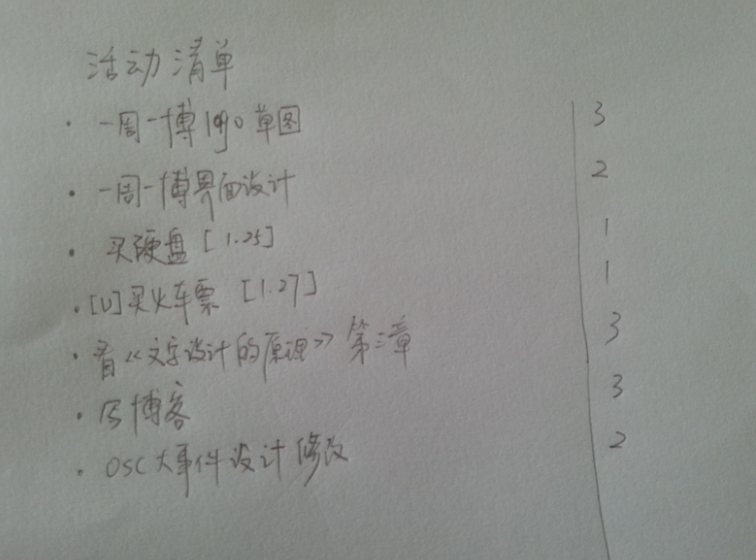 活动清单
· 一周一博logo草图 3
· 一周一博界面设计 2
· 买硬盘 [1.25] 1
· [U]买火车票 [1.27] 1
· 看《文字设计的原理》第三章 3
· 写博客 3
· OSC大事件设计修改 2